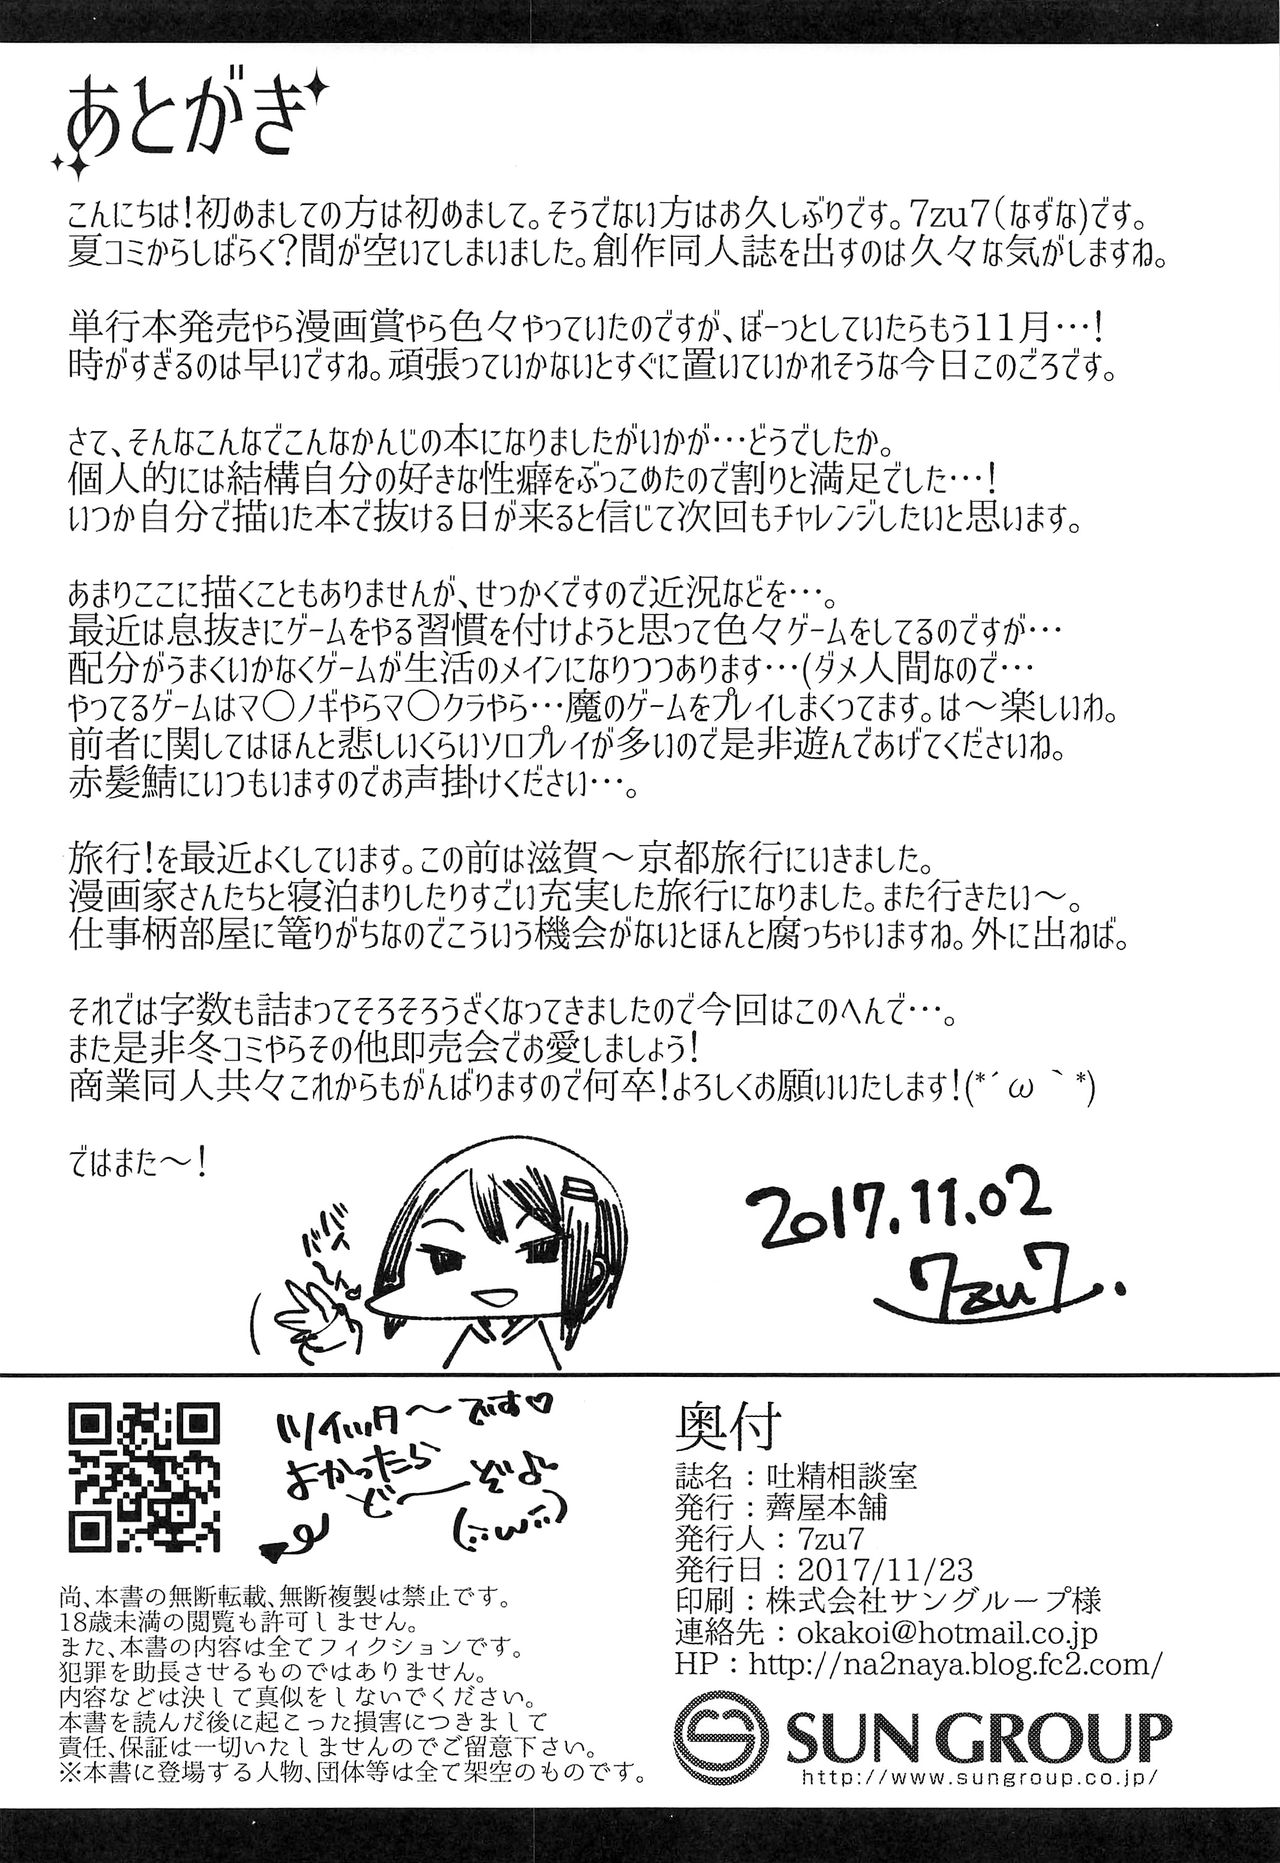 あとがき
こんにちは!初めましての方は初めまして。そうでない方はお久しぶりです。7zu7(なずな)です。
夏コミからしばらく?間が空いてしまいました。創作同人誌を出すのは久々な気がしますね。
単行本発売やら漫画賞やら色々やっていたのですが、ぼーっとしていたらもう11月…!
時がすぎるのは早いですね。頑張っていかないとすぐに置いていかれそうな今日このごろです。
さて、そんなこんなでこんなかんじの本になりましたがいかが…どうでしたか。
個人的には結構自分の好きな性癖をぶっこめたので割りと満足でした…!
いつか自分で描いた本で抜ける日が来ると信じて次回もチャレンジしたいと思います。
あまりここに描くこともありませんが、せっかくですので近況などを…。
最近は息抜きにゲームをやる習慣を付けようと思って色々ゲームをしてるのですが…
配分がうまくいかなくゲームが生活のメインになりつつあります…(ダメ人間なので…
やってるゲームはマ〇ノギやらマ〇クラやら…魔のゲームをプレイしまくってます。は～楽しいわ。
前者に関してはほんと悲しいくらいソロプレイが多いので是非遊んであげてくださいね。
赤髪鯖にいつもいますのでお声掛けください…。
旅行!を最近よくしています。この前は滋賀～京都旅行にいきました。
漫画家さんたちと寝泊まりしたりすごい充実した旅行になりました。また行きたい～。
仕事柄部屋に篭りがちなのでこういう機会がないとほんと腐っちゃいますね。外に出ねば。
それでは字数も詰まってそろそろうざくなってきましたので今回はこのへんで…。
また是非冬コミやらその他即売会でお愛しましょう!
商業同人共々これからもがんばりますので何卒!よろしくお願いいたします!(*´ω｀*)
ではまた～!
バイバ～イ
2017.11.02
7zu7.
ツイッタ～です♡
よかったら
ど～ぞよ
(..ω..)
奥付
誌名：吐精相談室
発行：薺屋本舗
発行人：7zu7
発行日：2017/11/23
印刷：株式会社サングループ様
連絡先：okakoi@hotmail.co.jp
HP：http://na2naya.blog.fc2.com/
SUN GROUP
http://www.sungroup.co.jp/
尚、本書の無断転載、無断複製は禁止です。
18歳未満の閲覧も許可しません。
また、本書の内容は全てフィクションです。
犯罪を助長させるものではありません。
内容などは決して真似をしないでください。
本書を読んだ後に起こった損害につきまして
責任、保証は一切いたしませんのでご留意下さい。
※本書に登場する人物、団体等は全て架空のものです。